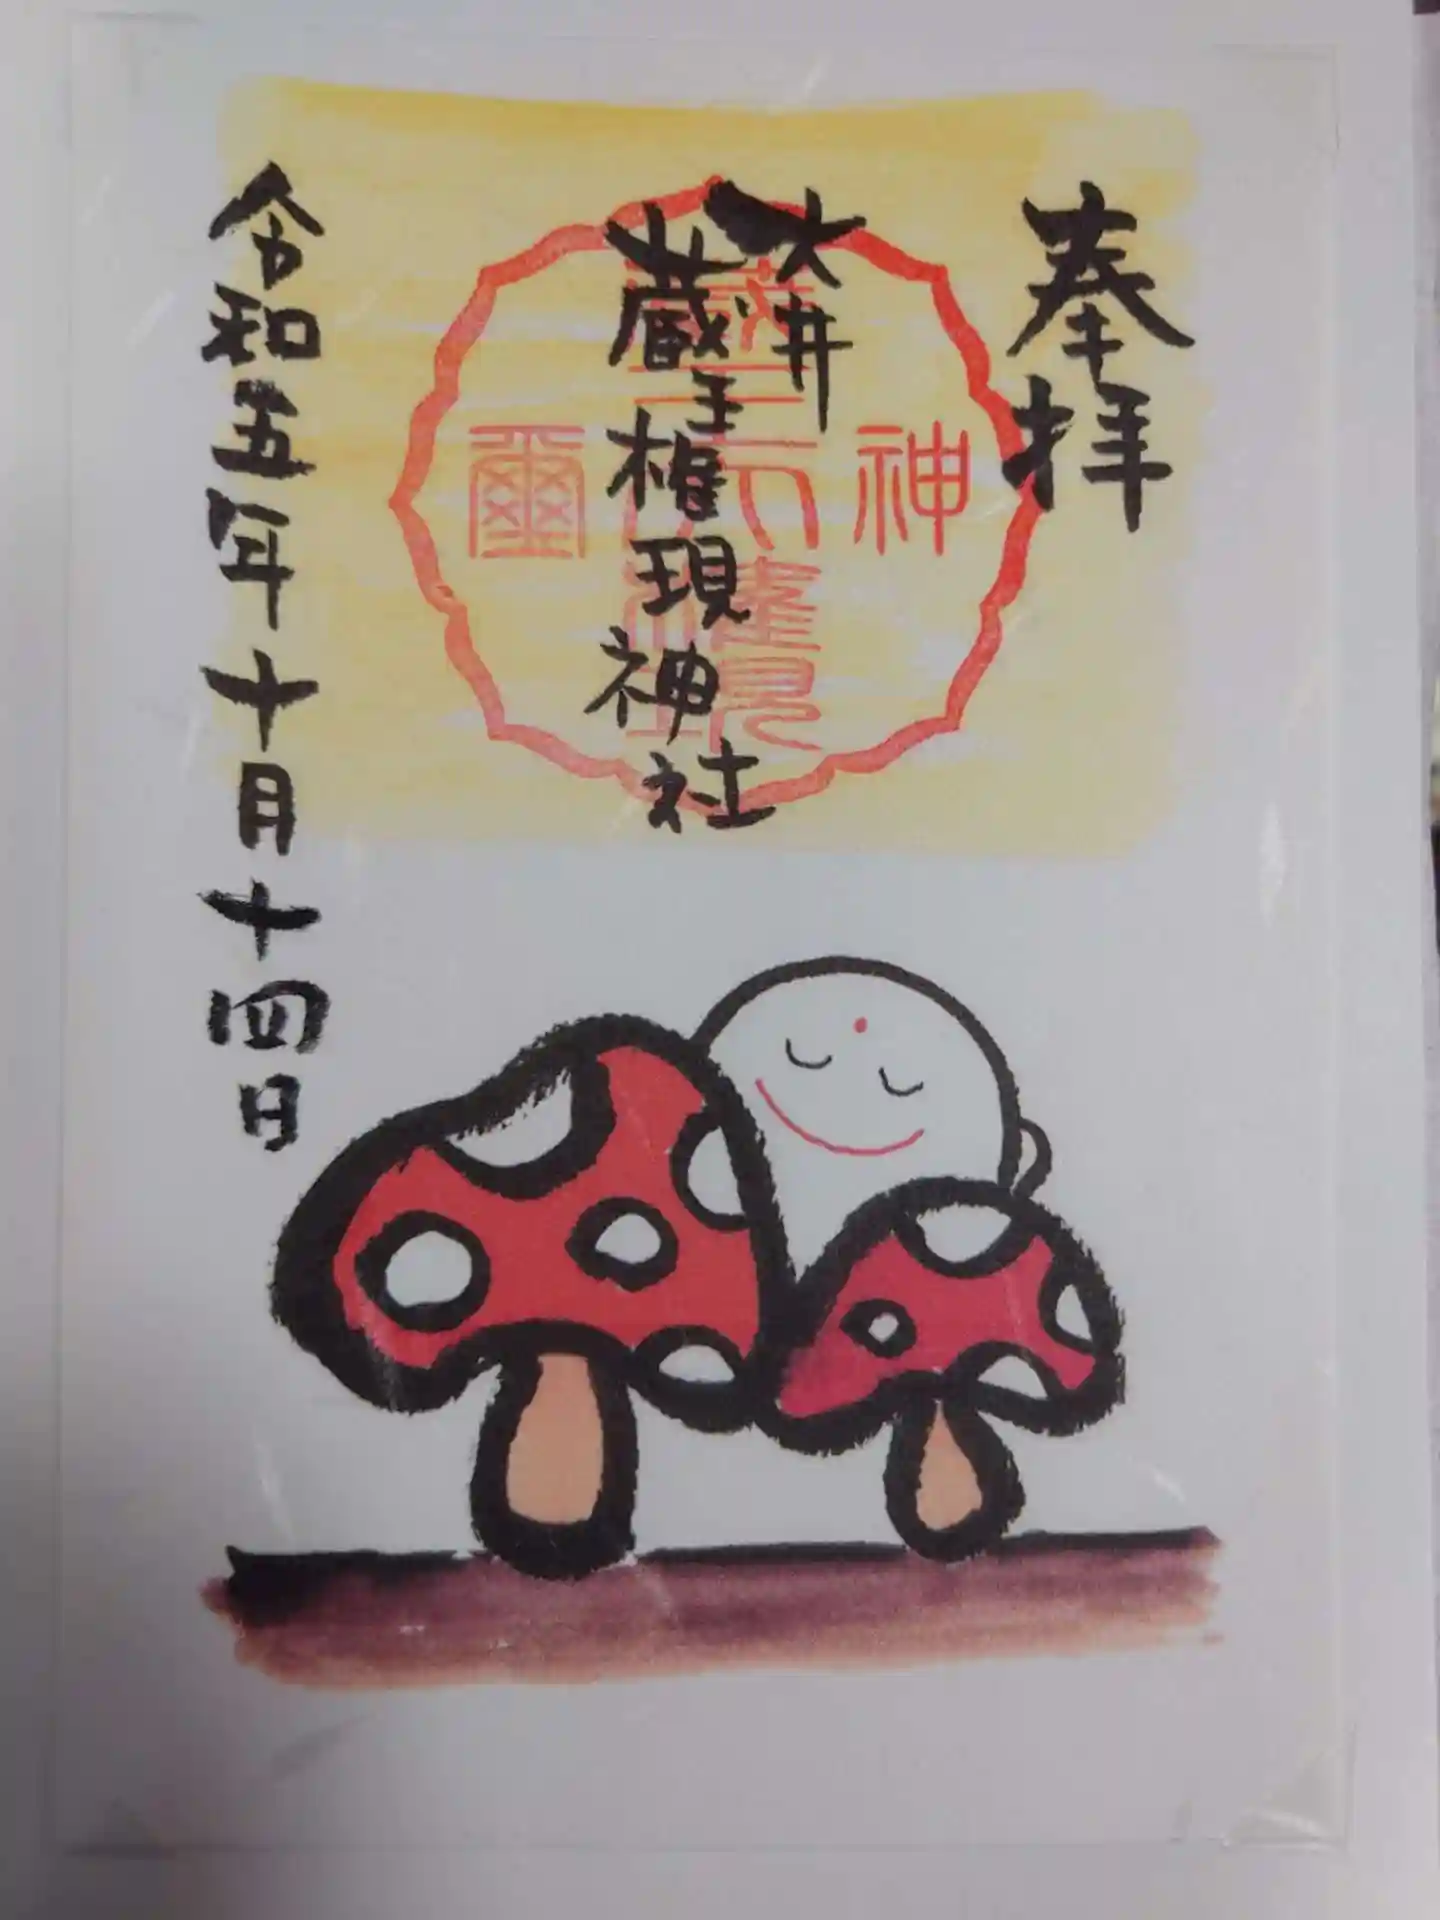 奉拝
大井
蔵王権現神社
神
璽
令和五年十月十四日